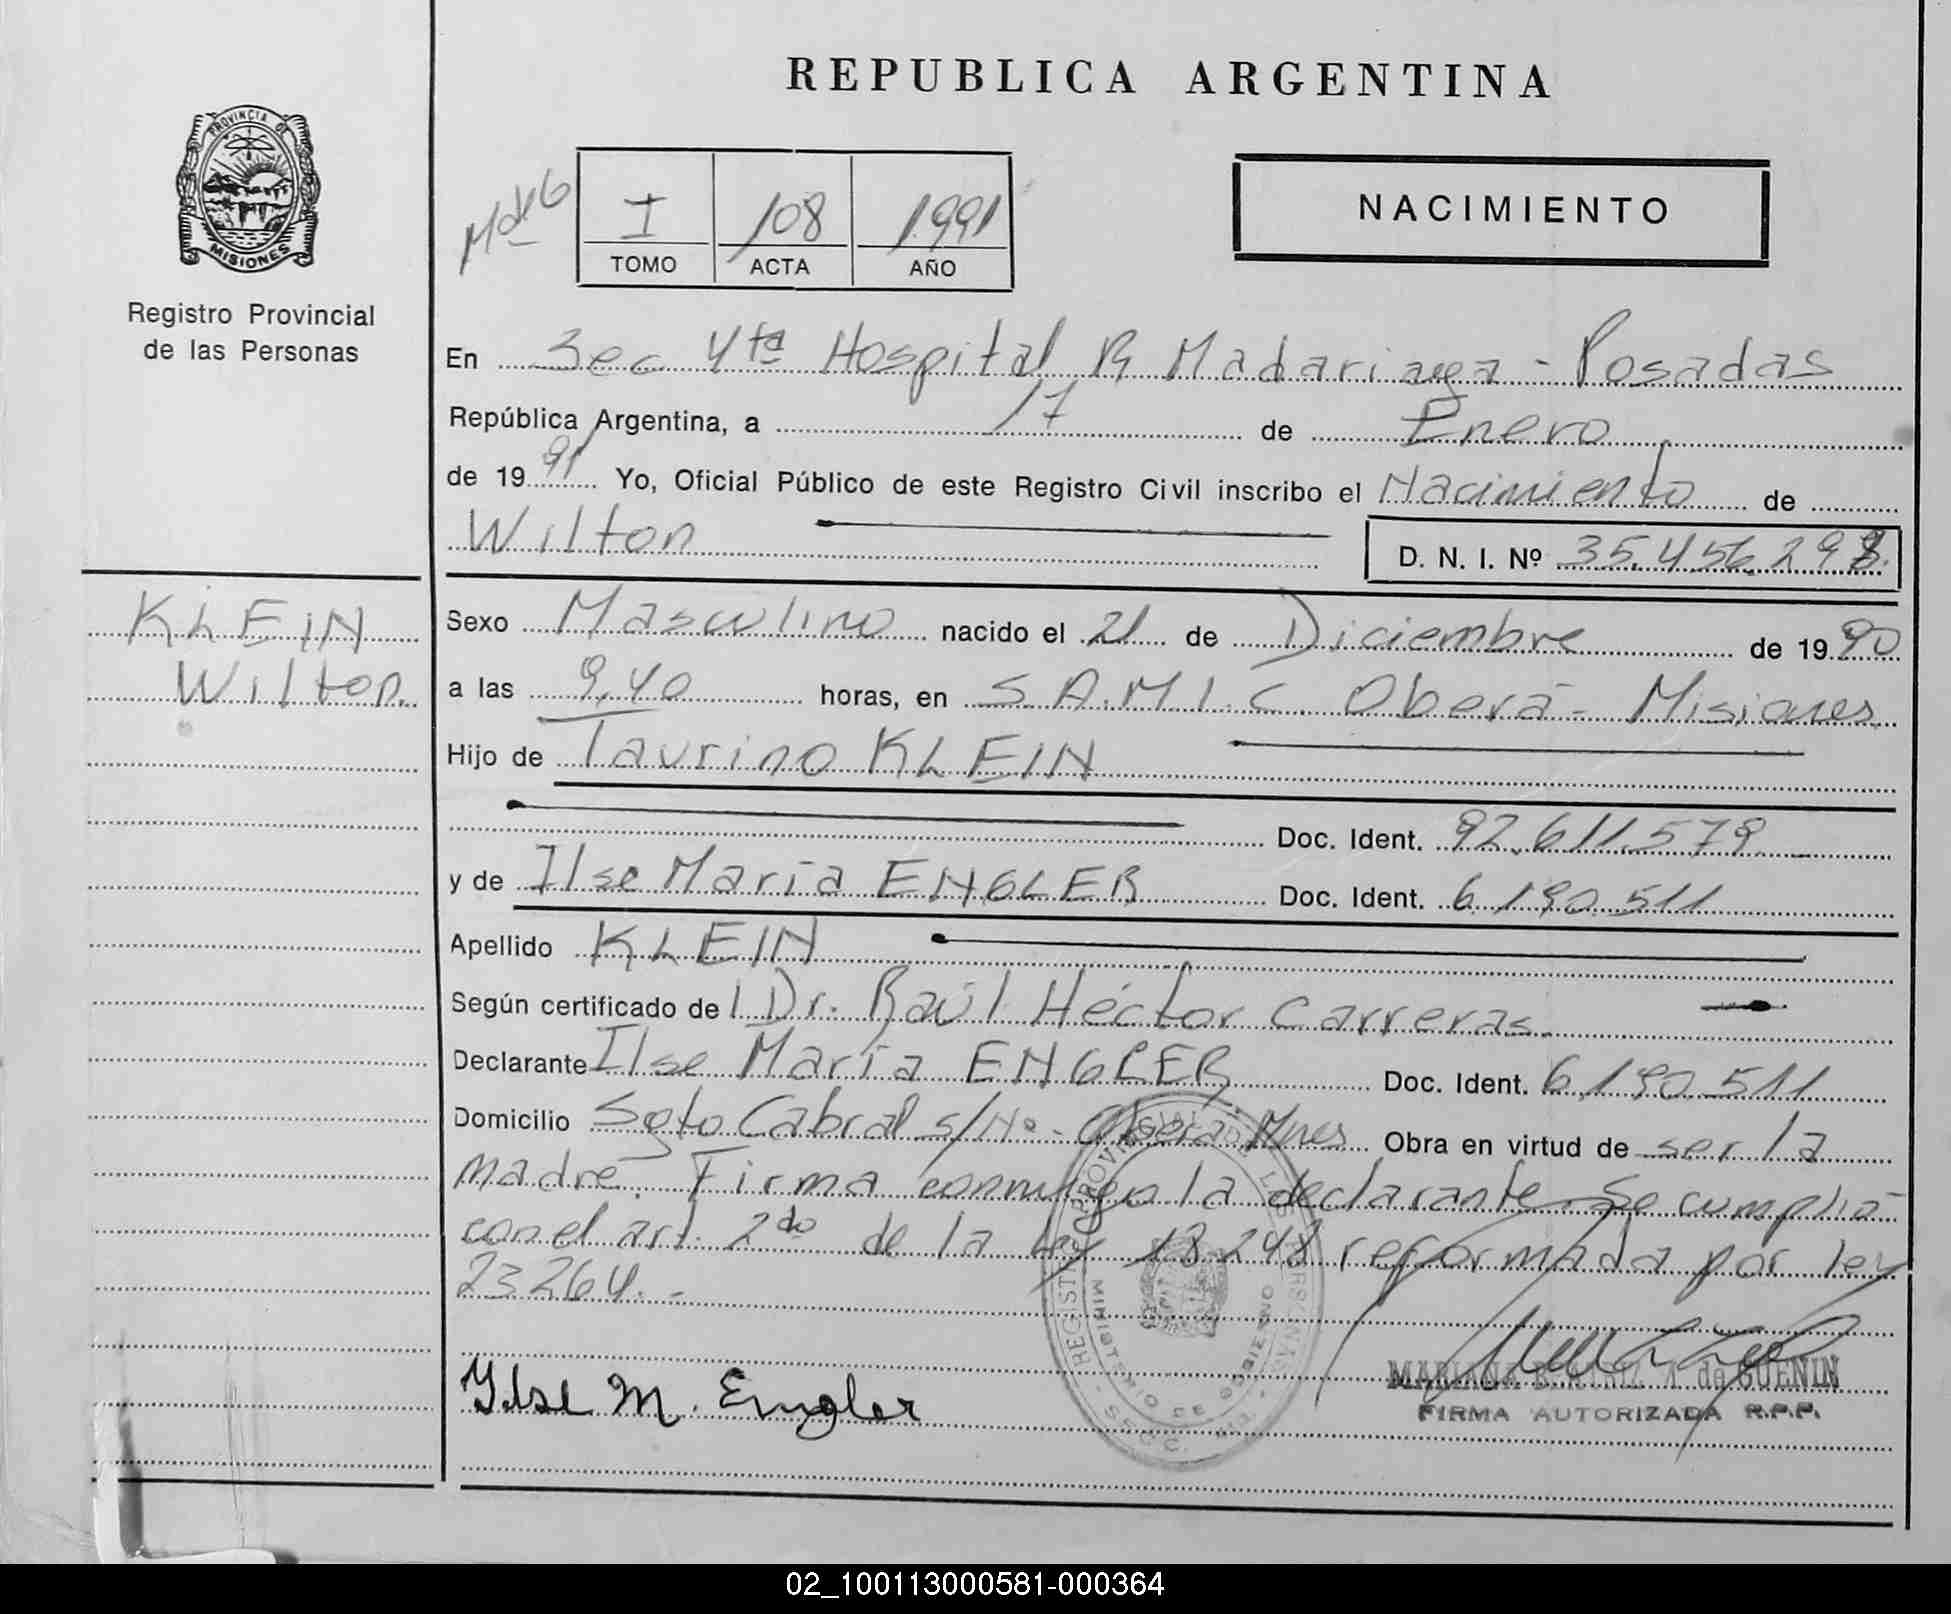 REPUBLICA ARGENTINA
PROVINCIA DE
MISIONES
Registro Provincial
de las Personas
I 108 1991
TOMO ACTA AÑO
NACIMIENTO
En Sec 4ta Hospital R Madariaga - Posadas
República Argentina, a 17 de Enero
de 1991 Yo, Oficial Público de este Registro Civil inscribo el Nacimiento de
Wilton D. N. I. Nº 35.456.298.
KLEIN
Wilton.
Sexo Masculino nacido el 21 de Diciembre de 1990
a las 9,40 horas, en S.A.M.I.C. Oberá - Misiones
Hijo de Taurino KLEIN
Doc. Ident. 92.611.579
y de Ilse María ENGLER Doc. Ident. 6.190.511
Apellido KLEIN
Según certificado de l Dr. Raúl Héctor Carreras.
Declarante Ilse María ENGLER Doc. Ident. 6.190.511
Domicilio Sgto Cabral s/Nº - Oberá Mnes Obra en virtud de ser la
madre. Firma conmigo la declarante. Se cumplió
con el art. 2do de la ley 18.248 reformada por ley
23264.-
REGISTRO PROVINCIAL DE LAS PERSONAS
MINISTERIO DE GOBIERNO
Ilse M. Engler
MARIANA BEATRIZ A de GUENIN
FIRMA AUTORIZADA R.P.P.
02_100113000581-000364